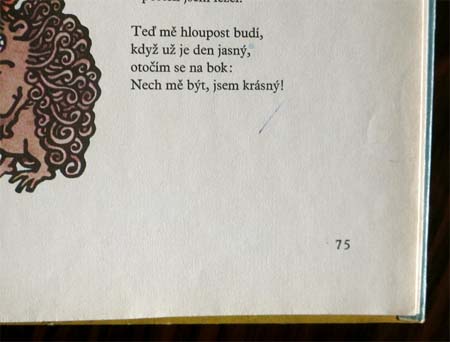 jsem ležel.
Teď mě hloupost budí,
když už je den jasný,
otočím se na bok:
Nech mě být, jsem krásný!
75